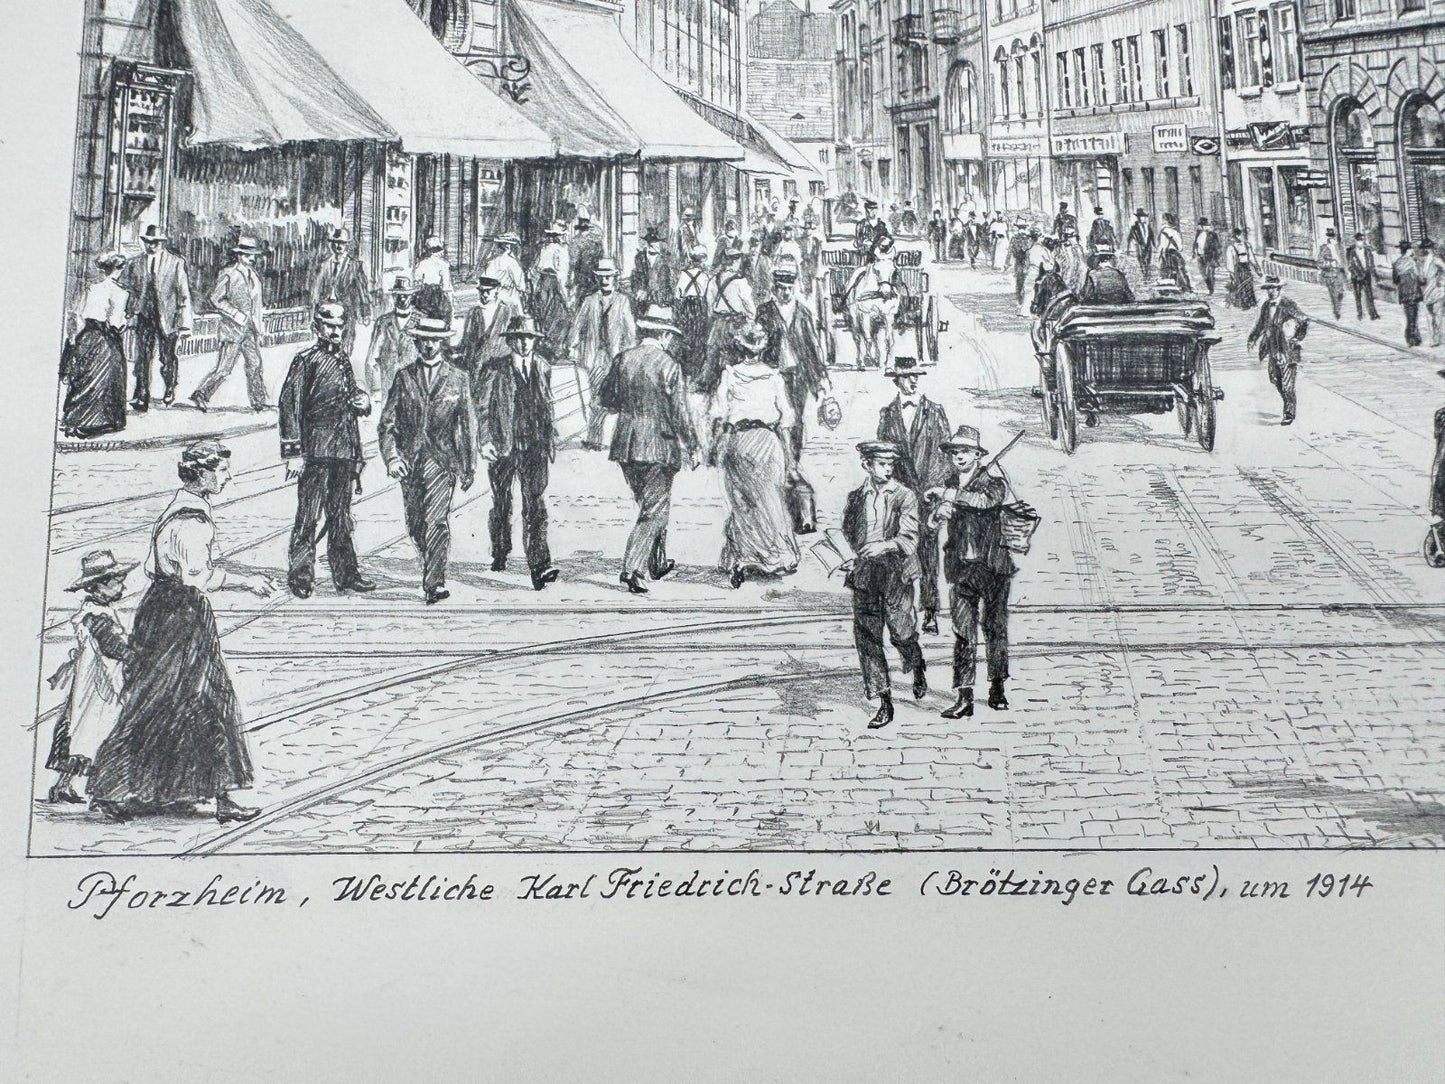 Pforzheim, Westliche Karl Friedrich-Straße (Brötzinger Gass), um 1914